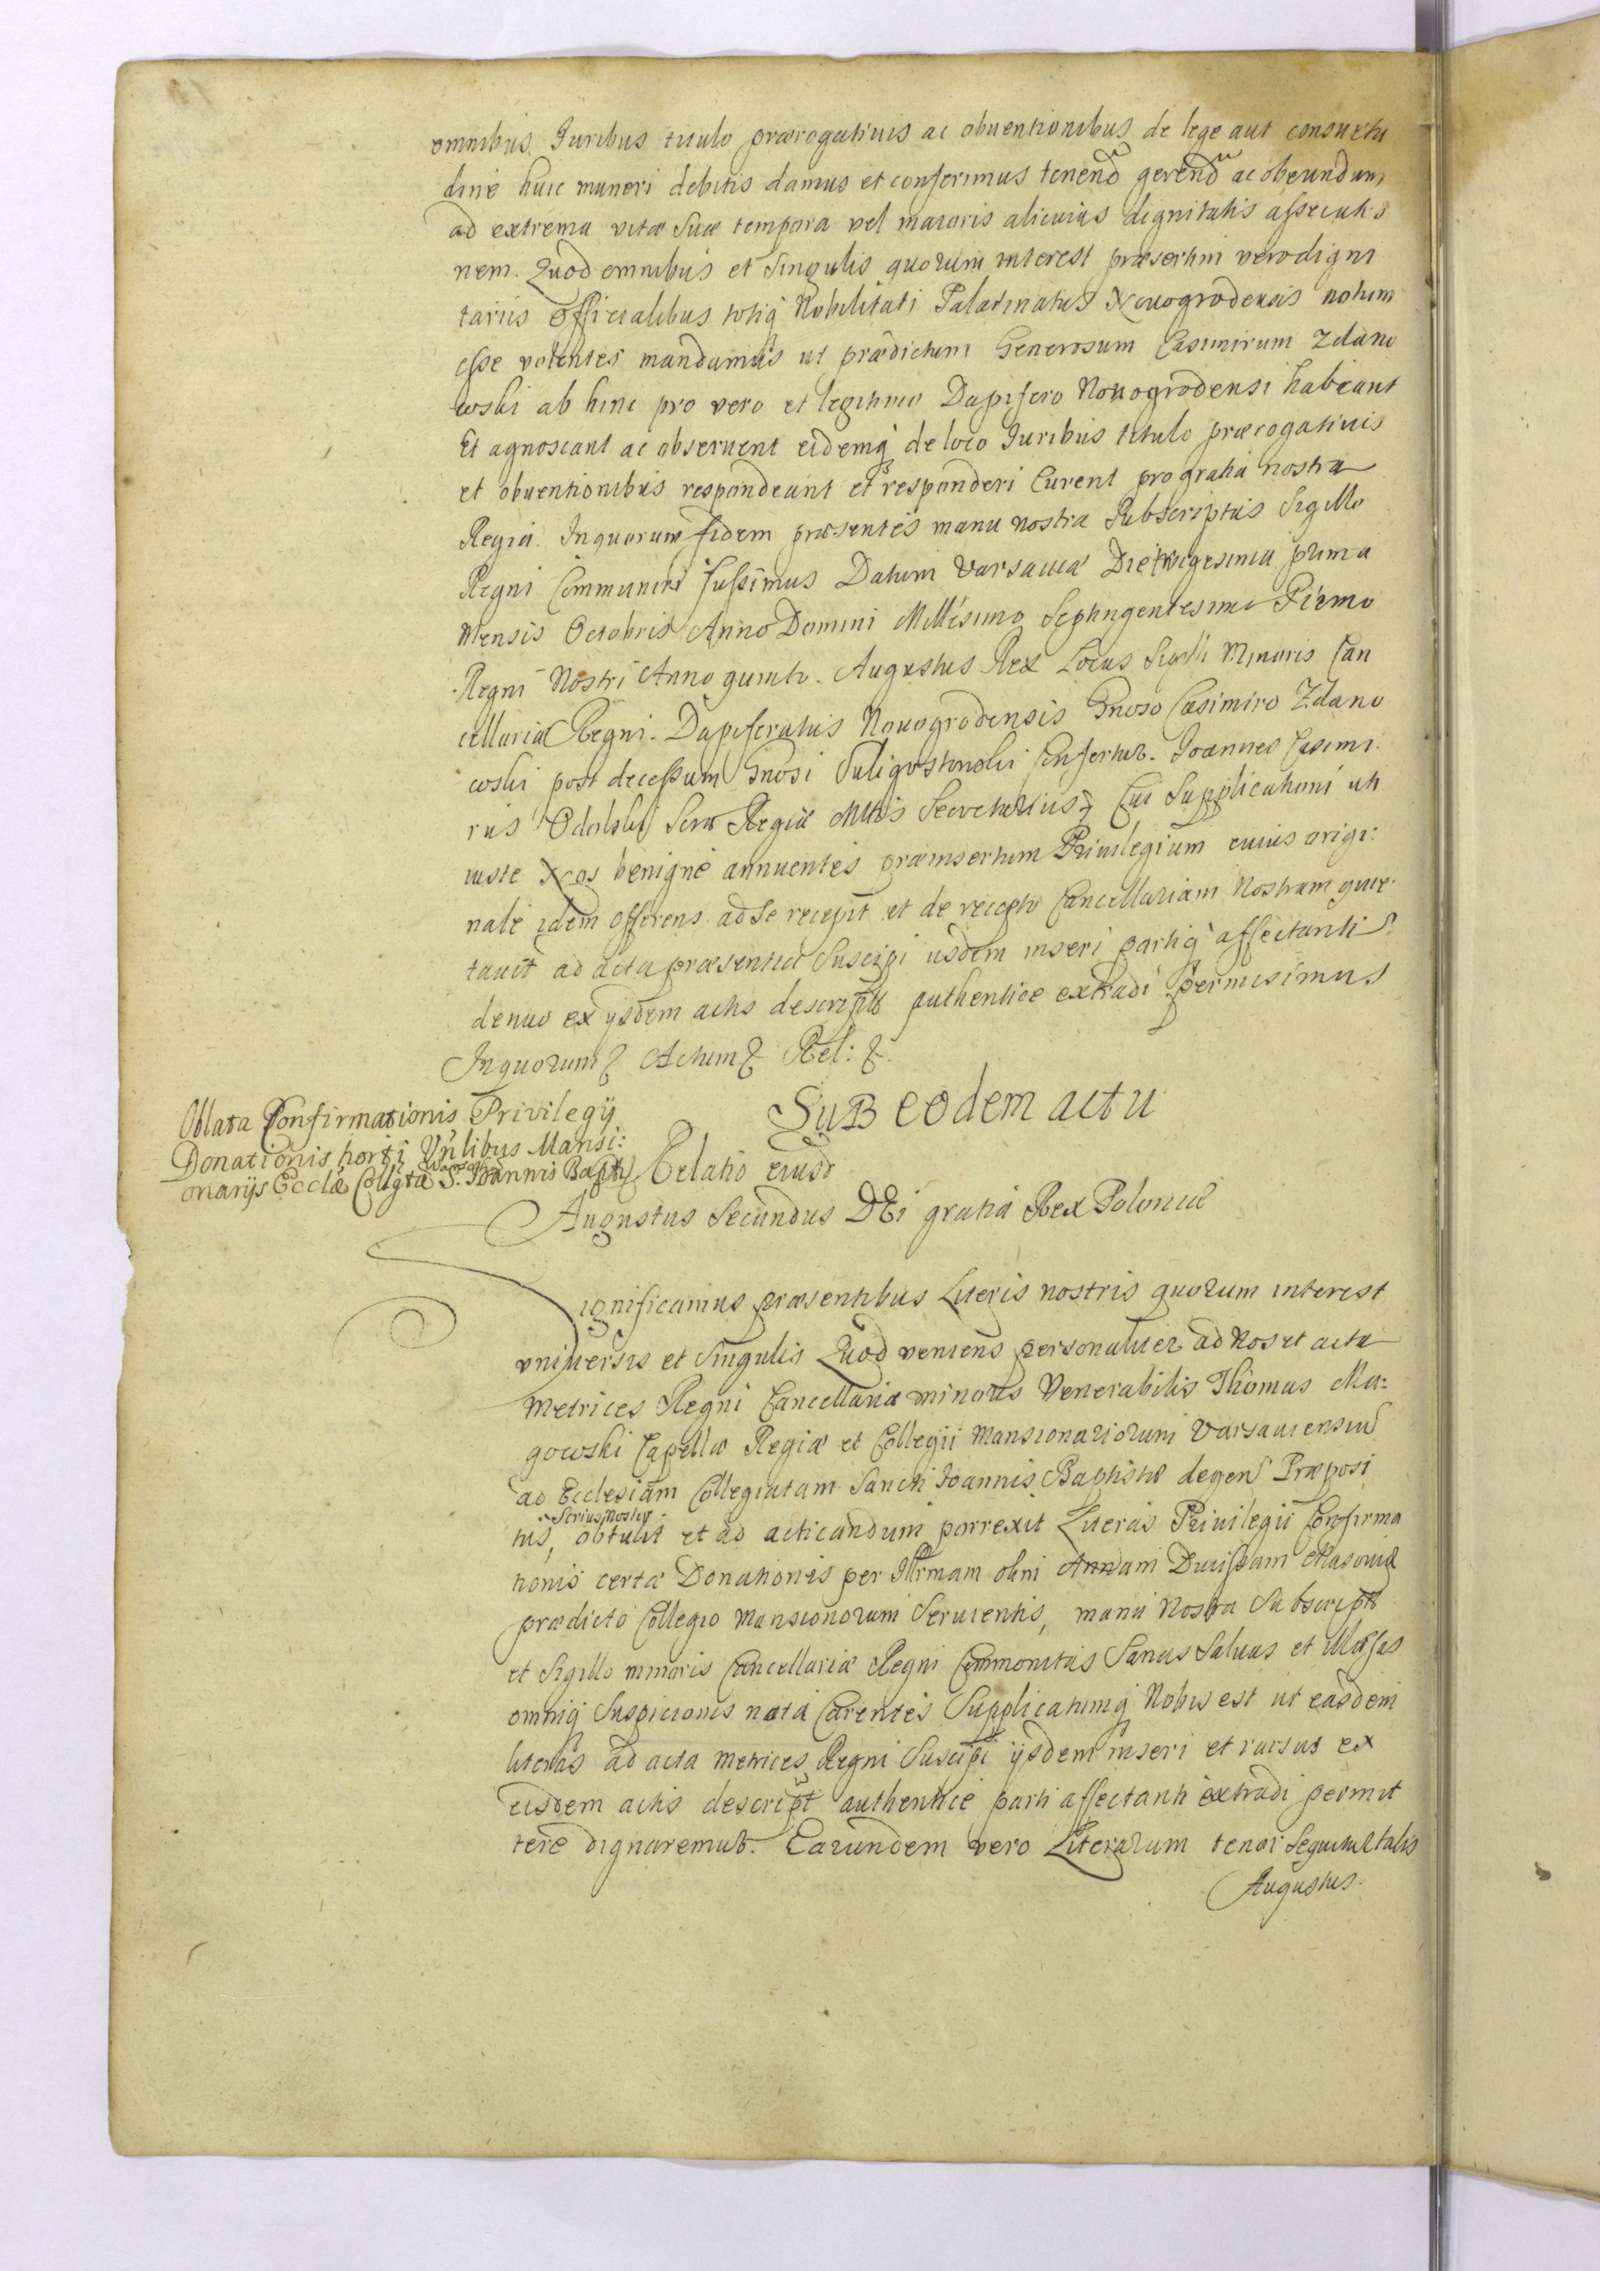 omnibus Juribus titulo prærogativis ac obventionibus de lege aut consvetu
dine huic muneri debitis damus et conferimus tenend gerend ac obeundum
ad extrema vitæ suæ tempora vel maioris alicuius dignitatis assecutio
nem. Quod omnibus et singulis quorum interest præsertim vero digni
tariis officialibus totiq Nobilitati Palatinatus Novogrodensis notum
esse volentes mandamus ut prædictum Generosum Casimirum Zdano
wski ab hinc pro vero et legitimo Dapifero Novogrodensi habeant
Et agnoscant ac observent eidemq de loco Juribus titulo prærogativis
et obventionibus respondeant et responderi curent pro gratia nostra
Regia. In quorum fidem præsentes manu nostra Subscriptas Sigillo
Regni Communiri jussimus Datum Varsaviæ Die vigesima prima
Mensis Octobris Anno Domini Millesimo Septingentesimo Primo
Regni Nostri Anno quinto. Augustus Rex Locus Sigilli Minoris Can
cellariæ Regni. Dapiferatus Novogrodensis Gnoso Casimiro Zdano
wski post decessum Gnosi Suligostowski Confertur. Joannes Casimi
rus Odolski Regiæ Mttis Secretarius Cui Supplicationi uti
iuste Nos benigne annuentes præinsertum Privilegium cuius origi:
nale idem offerens ad se recepit et de recepto Cancellariam Nostram quie
tavit ad acta præsentia Suscipi iisdem inseri partiq affectanti
denuo ex ijsdem actis descriptum authentice extradi permisimus
In quorum Actum Rel:
Sub eodem actu
Oblata Confirmationis Privilegij
Donationis horti Vnlibus Mansi:
onarijs Ecclæ Collgtæ S. Joannis Bapt
Relatio eiusd
Augustus Secundus DEi gratia Rex Poloniæ
Significamus præsentibus Literis nostris quorum interest
universis et singulis Quod veniens personaliter ad Nos et acta
Metrices Regni Cancellariæ minoris Venerabilis Thomas Ma:
gowski Capellæ Regiæ et Collegii Mansionariorum Varsaviensium
ad Ecclesiam Collegiatam Sancti Joannis Baptistæ degens Præposi
tus, obtulit et ad acticandum porrexit Literas Privilegii Confirma
tionis certæ Donationis per Illrmam olim Annam Ducissam Masoviæ
prædicto Collegio Mansionorum Servientis, manu Nostra Subscript
et Sigillo minoris Cancellariæ Regni Communitas Sanas Salvas et Illæsas
omniq Suspicionis nota Carentes Supplicatumq Nobis est ut easdem
literas ad acta Metrices Regni Suscipi ijsdem inseri et rursus ex
eisdem actis descript authentice parti affectanti extradi permit
tere dignaremur. Earundem vero Literarum tenor sequitur talis
Augustus.